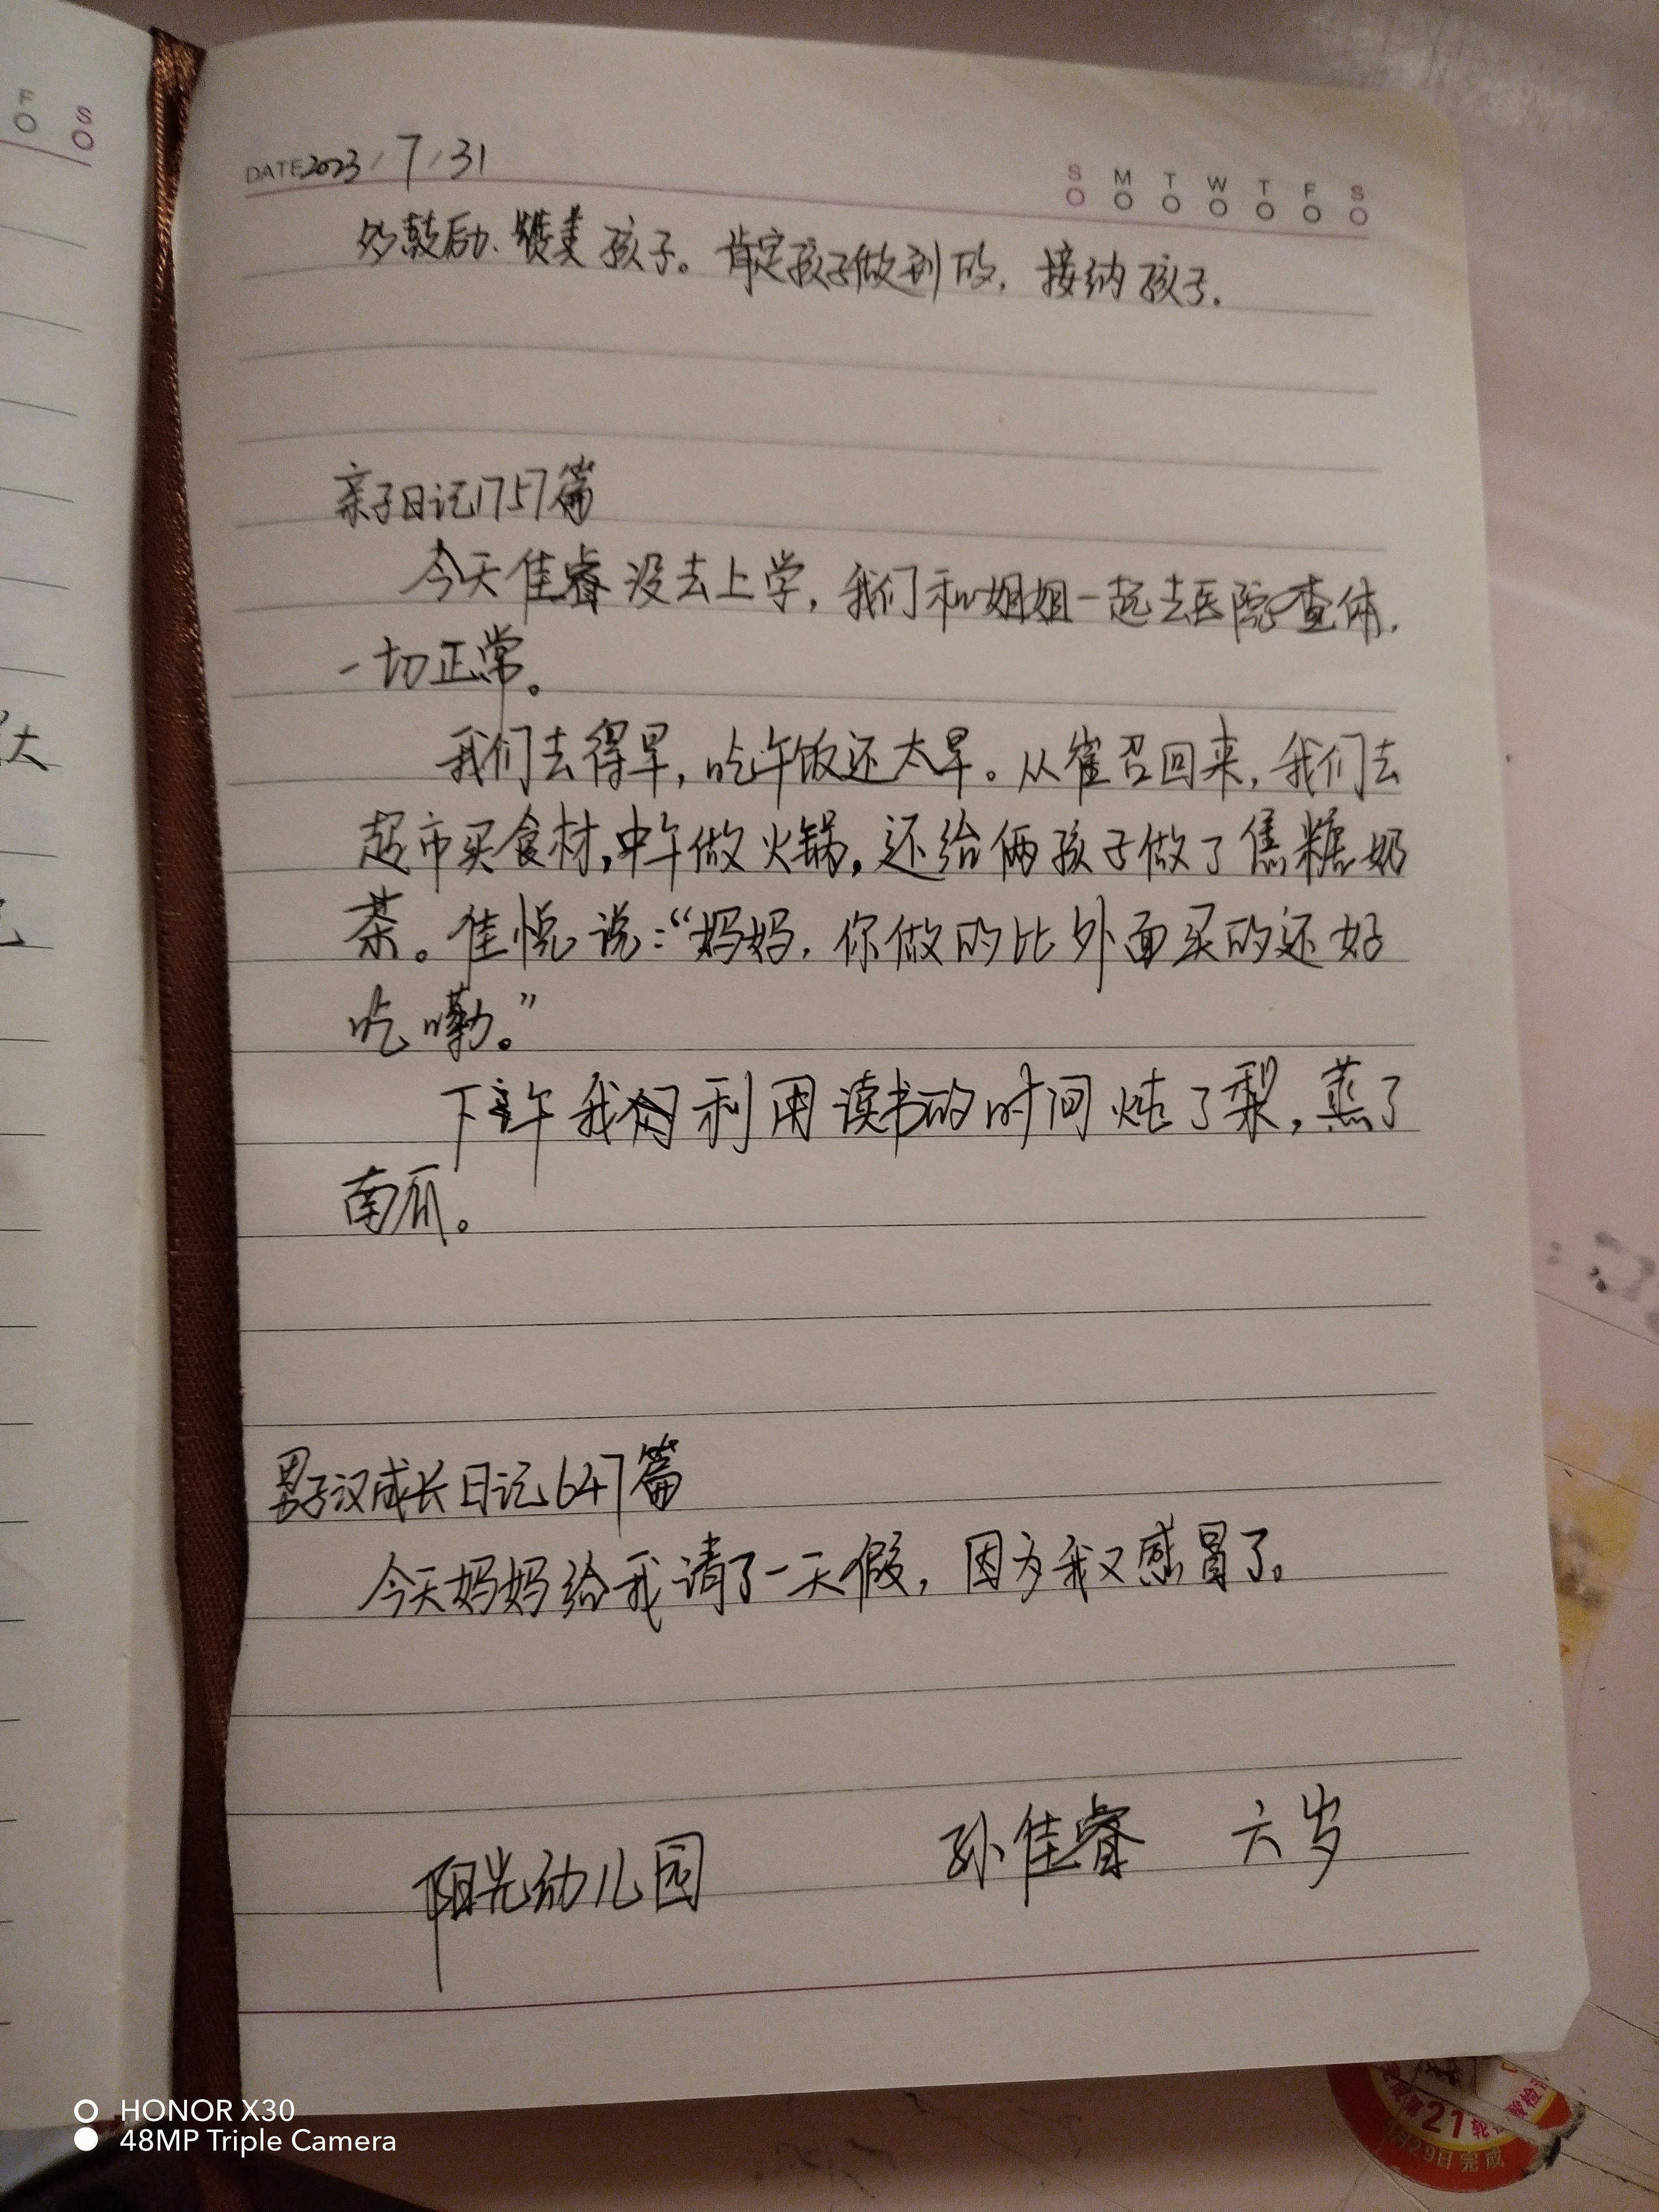 F S
DATE 2023/7/31
S M T W T F S
多鼓励、赞美孩子。肯定孩子做到的，接纳孩子。
亲子日记1757篇
今天佳睿没去上学，我们和姐姐一起去医院查体，
一切正常。
我们去得早，吃午饭还太早。从崔召回来，我们去
超市买食材，中午做火锅，还给俩孩子做了焦糖奶
茶。佳悦说：“妈妈，你做的比外面买的还好
吃嘞。”
下午我们利用读书的时间炖了梨，蒸了
南瓜。
男子汉成长日记647篇
今天妈妈给我请了一天假，因为我又感冒了。
阳光幼儿园 孙佳睿 六岁
大
第21轮
29日完成
HONOR X30
48MP Triple Camera